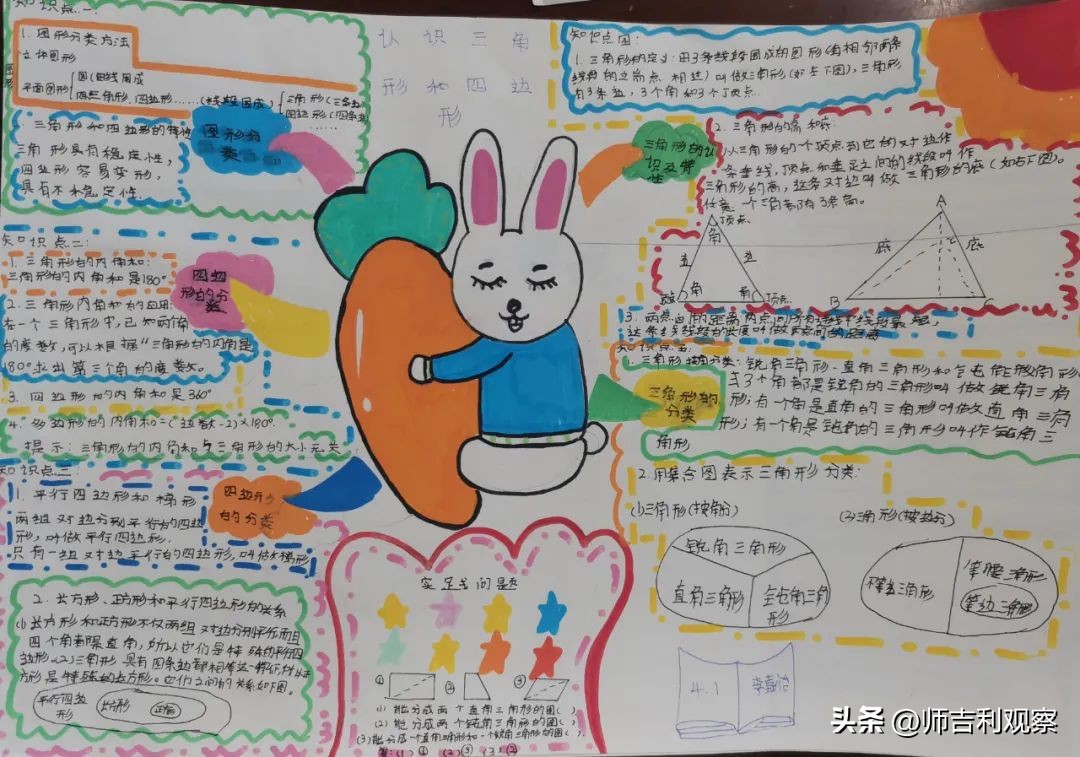 知识点一:
1.图形分类方法
立体图形
平面图形
圆(曲线围成
三角形(三条边
四边形(四条边
……
三角形和四边形的特性
三角形具有稳定性,
四边形容易变形,
具有不稳定性.
图形分
类
认识三角
形和四边
形
知识点四:
1.三角形的定义:由3条线段围成的图形(每相邻两条
线段的端点相连)叫做三角形(如左下图),三角形
有3条边,3个角和3个顶点.
三角形的认
识及特
性
2.三角形的高和底:
从三角形的一个顶点到它的对边作
一条垂线,顶点和垂足之间的线段叫作
三角形的高,这条对边叫做三角形的底(如右下图)。
任意一个三角形都有3条高。
顶点
角
边
边
角
角
顶点
A
底
底
B
C
3.两点间的距离
知识点五:
1.三角形按角分类:锐角三角形、直角三角形和钝角三角形
3个角都是锐角的三角形叫做锐角三角
形;有一个角是直角的三角形叫做直角三角
形;有一个角是钝角的三角形叫作钝角三
角形
三角形的
分类
2.用集合图表示三角形分类:
(1)三角形(按角分)
(2)三角形(按边分)
锐角三角形
直角三角
形
钝角三角
形
不等边三角形
等腰三角形
等边三角形
知识点二:
1.三角形的内角和:
三角形的内角和是180°
2.三角形内角和的应用
在一个三角形中,已知两个角
的度数,可以根据"三角形的内角是
180°求出第三个角的度数.
3.四边形的内角和是360°
4.多边形的内角和=(边数-2)×180°
提示:三角形的内角和与三角形的大小无关
四边
形的分
类
知识点三:
1.平行四边形和梯形
两组对边分别平行的四边
形,叫做平行四边形.
只有一组对边平行的四边形,叫做梯形
四边形
的分类
2.长方形、正方形和平行四边形的关系
(1)长方形和正方形不仅两组对边分别平行而且
四个角都是直角,所以它们是特殊的平行四
边形.(2)正方形具有四条边都相等这一特征,所以正
方形是特殊的长方形。它们之间的关系如下图。
平行四边
形
长方形
正方形
实践问题
①
②
③
(1)能分成两个直角三角形的图( )
(2)能分成两个钝角三角形的图( )
(3)能分成一个直角三角形和一个钝角三角形的图( ).
答:(1)① (2)③ (3)②
4.1
头条 @师吉利观察